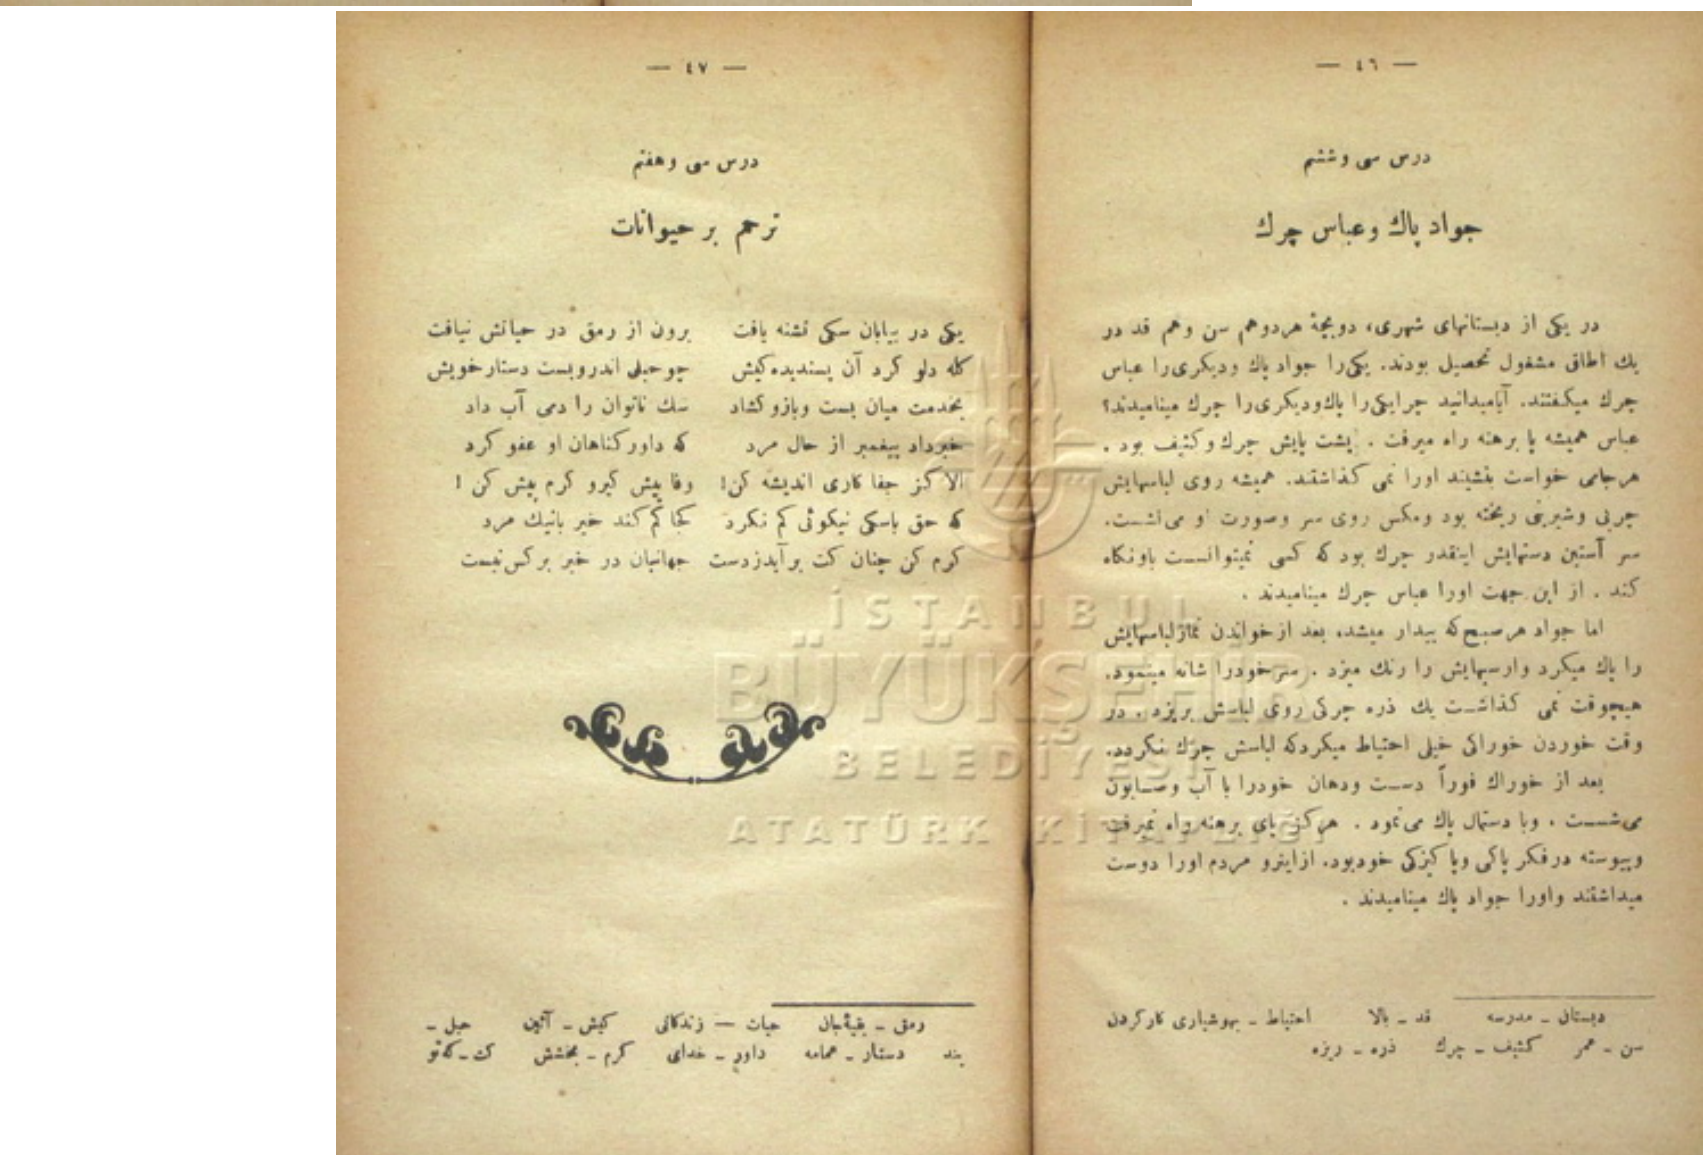 — ٤٦ —
درس سی وششم
جواد پاك وعباس چرك
در یکی از دبستانهای شهری، دوبچهٔ هردوهم سن وهم قد در
یك اطاق مشغول تحصیل بودند. یکی‌را جواد پاك ودیکری‌را عباس
چرك میکفتند. آیامیدانید چرایکی‌را پاك‌ودیکری‌را چرك مینامیدند؟
عباس همیشه پا برهنه راه میرفت . پشت پایش چرك وکثیف بود .
هرجامی خواست بنشیند اورا نمی کذاشتند. همیشه روی لباسهایش
چربی وشیرینی ریخته بود ومکس روی سر وصورت او می‌نشست.
سر آستین دستهایش اینقدر چرك بود که کسی نمیتوانست باونکاه
کند . از این جهت اورا عباس چرك مینامیدند .
اما جواد هرصبح که بیدار میشد، بعد ازخواندن نمازلباسهایش
را پاك میکرد وارسیهایش را رنك میزد . سرخودرا شانه مینمود.
هیچوقت نمی کذاشت یك ذره چرکی روی لباسش بریزد . در
وقت خوردن خوراکی خیلی احتیاط میکردکه لباسش چرك نکردد.
بعد از خوراك فوراً دست ودهان خودرا با آب وصابون
می‌شست . وبا دستمال پاك می‌نمود . هرکز پای برهنه راه نمیرفت
وپیوسته درفکر پاکی وپاکیزکی خودبود. ازاینرو مردم اورا دوست
میداشتند واورا جواد پاك مینامیدند .
دبستان ـ مدرسه قد ـ بالا احتیاط ـ بهوشیاری کارکردن
سن ـ عمر کثیف ـ چرك ذره ـ ریزه
— ٤٧ —
درس سی وهفتم
ترحم بر حیوانات
یکی در بیابان سکی تشنه یافت برون از رمق در حیاتش نیافت
کله دلو کرد آن پسندیده‌کیش چوحبلی اندروبست دستارخویش
بخدمت میان بست وبازوکشاد سك ناتوان را دمی آب داد
خبرداد پیغمبر از حال مرد که داورکناهان او عفو کرد
الا کز جفا کاری اندیشه کن! وفا پیش کیرو کرم پیش کن !
که حق باسکی نیکوئی کم نکرد کجا کم کند خیر بانیك مرد
کرم کن چنان کت برآیدزدست جهانبان در خیر برکس‌نبست
رمق ـ بقیهٔ‌جان حیات — زندکانی کیش ـ آئین حبل ـ
بند دستار ـ عمامه داور ـ خدای کرم ـ بخشش کت ـ که‌تو
İSTANBUL
BÜYÜKŞEHİR
BELEDİYESİ
ATATÜRK KİTAPLIĞI